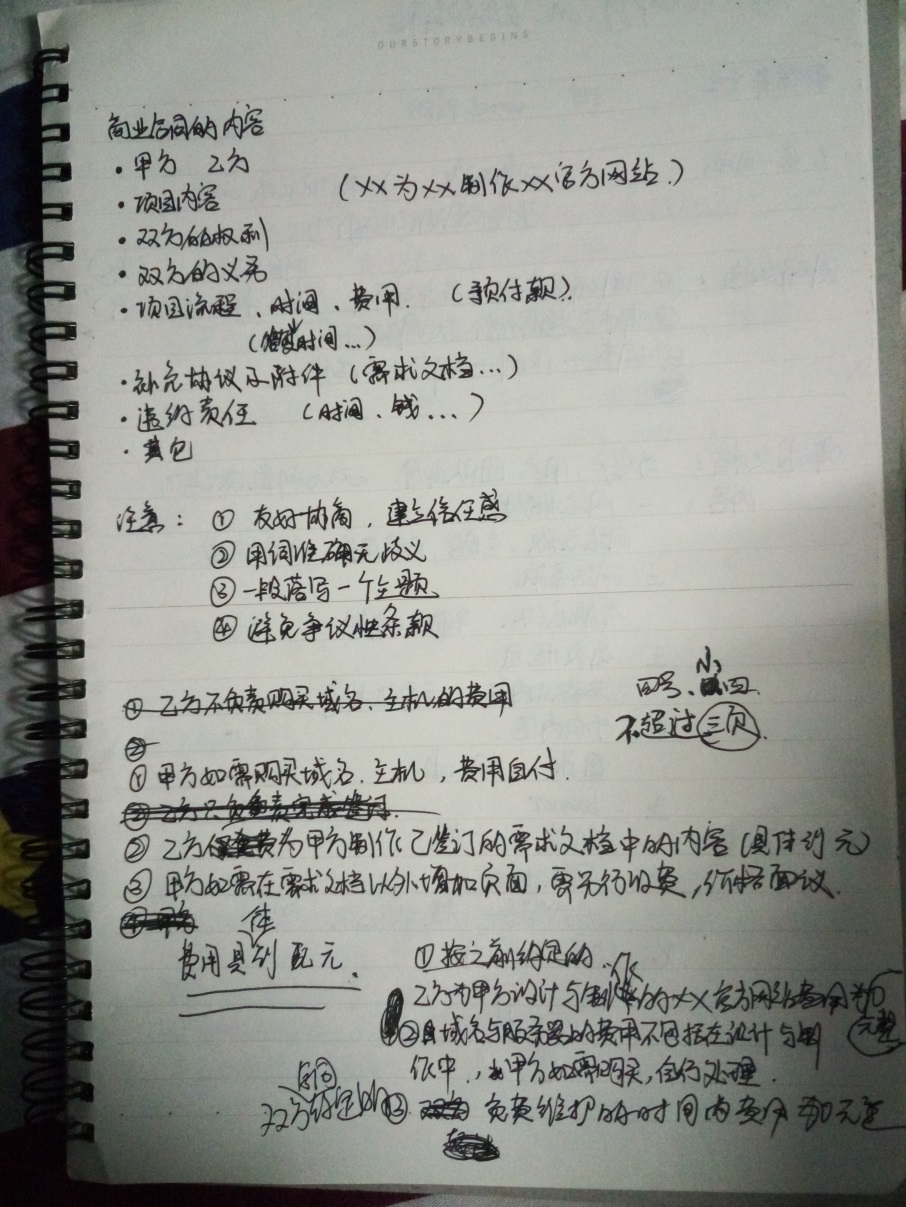 OURSTORYBEGINS
商业合同的内容
· 甲方 乙方
· 项目内容 (XX为XX制作XX官方网站.)
· 双方的权利
· 双方的义务
· 项目流程、时间、费用. (预付款).
时间...)
· 补充协议及附件 (需求文档...)
· 违约责任 (时间、钱...)
· 其它
注意: ① 友好协商,建立信任感
② 用词准确无歧义
③ 一段落写一个主题
④ 避免争议性条款
四号、小四.
不超过三页.
① 乙方不负责购买域名、主机的费用
②
① 甲方如需购买域名、主机,费用自付.
② 乙方只负责完成签订
② 乙方为甲方制作已签订的需求文档中的内容(具体到元)
③ 甲方如需在需求文档以外增加页面,需另行收费,价格面议.
④ 甲方
费用具体到 元.
① 按之前约定的.
乙方为甲方设计与制作的XX官方网站费用为0元整
② 域名与服务器的费用不包括在设计与制
作中.,甲方如需购买,自行处理.
双方约定的③ 免费维护的时间内费用为0元整